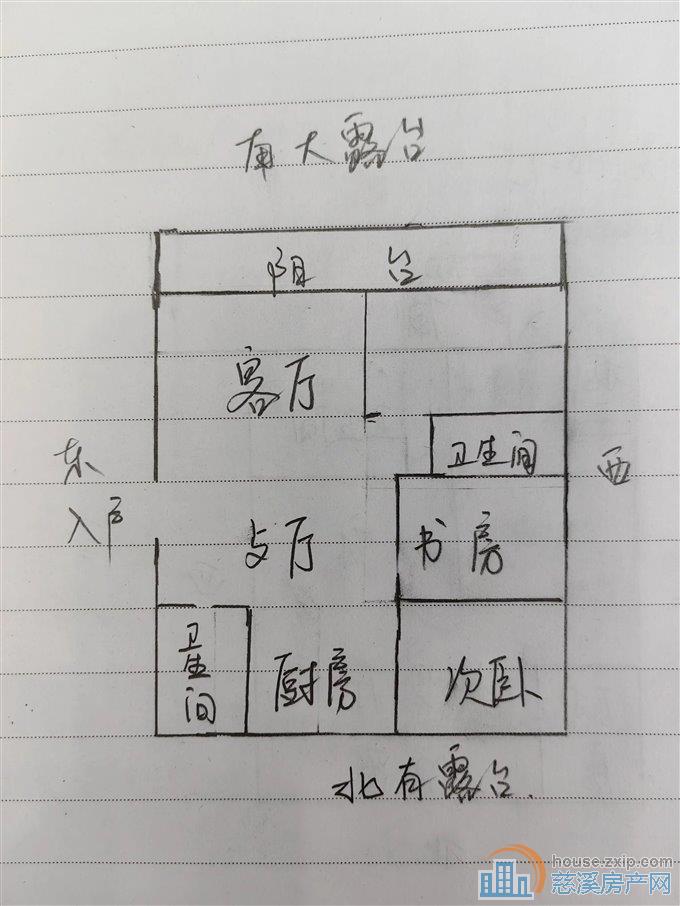 南大露台
阳 台
客厅
卫生间
东
西
入户
厅
书房
卫生间
厨房
次卧
北有露台.
house.zxip.com
慈溪房产网